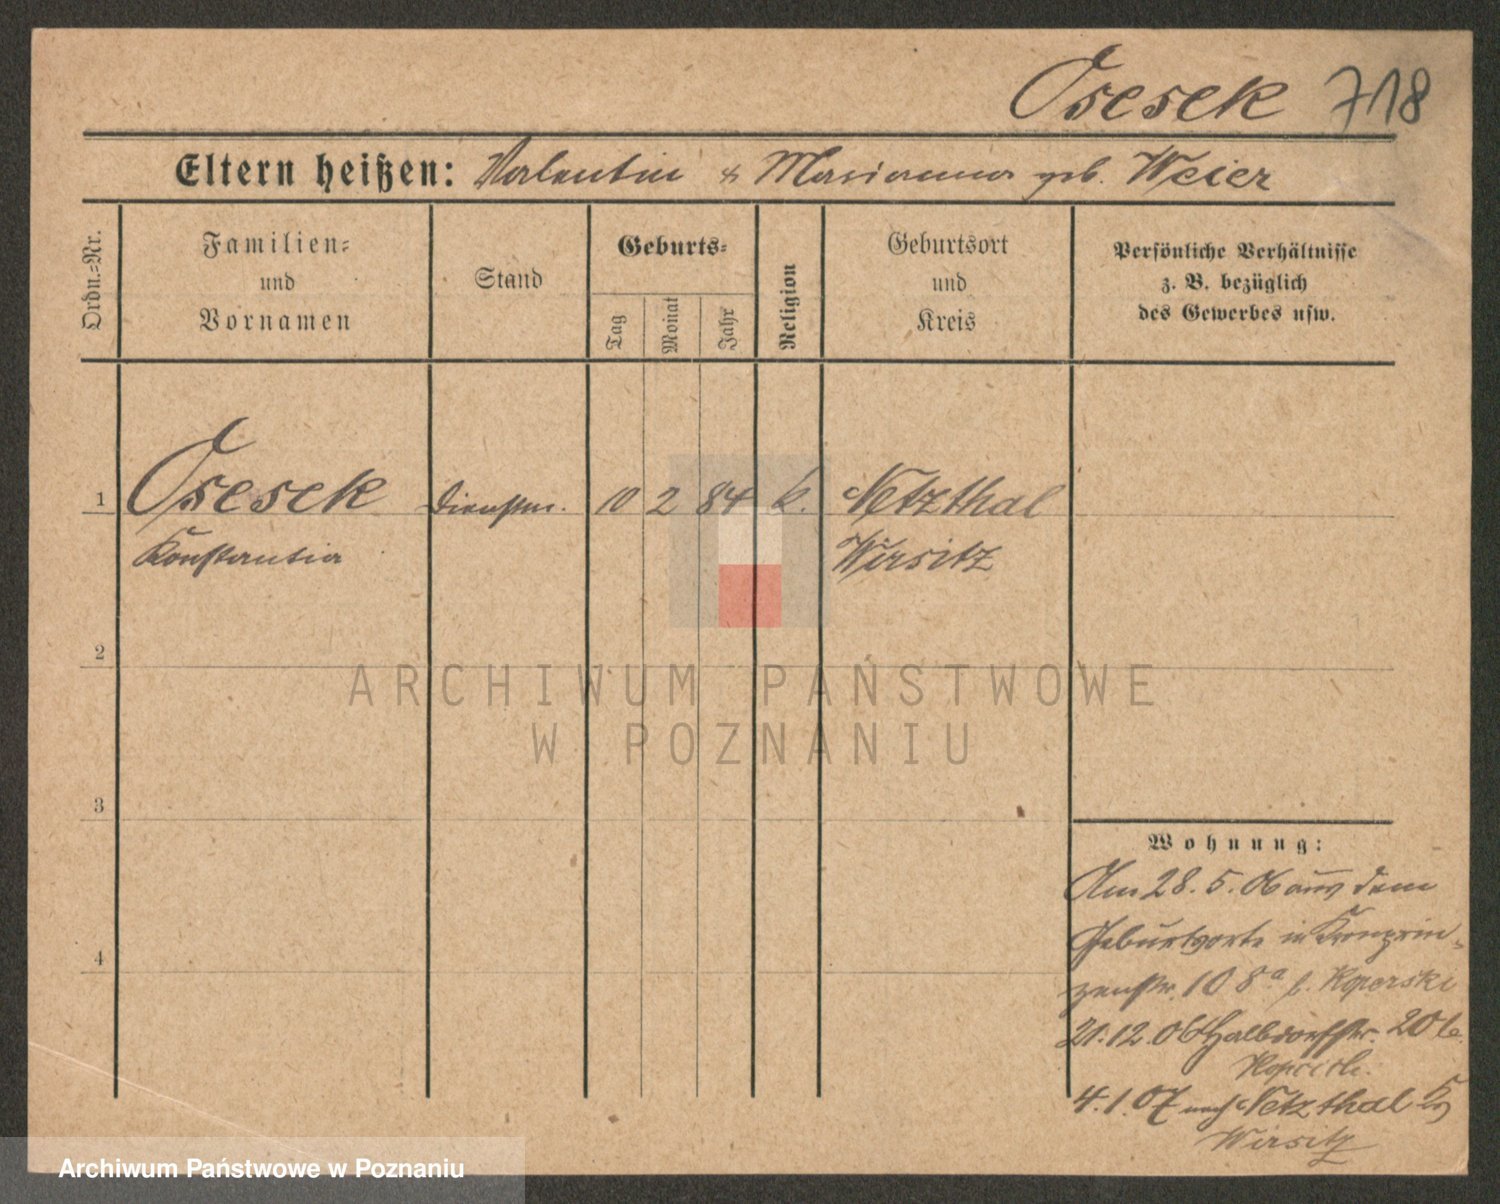 Osesek 718
Eltern heißen: Valentin & Marianna geb. Weier
Ordn.-Nr.
Familien-
und
Vornamen
Stand
Geburts-
Tag
Monat
Jahr
Religion
Geburtsort
und
Kreis
Persönliche Verhältnisse
z. B. bezüglich
des Gewerbes usw.
1 Osesek Dienstm. 10 2 84 k. Netzthal
Konstantia Wirsitz
2
3
4
Wohnung:
Am 28.5.06 aus dem
Geburtsorte in Kronprin-
zenstr. 108a b. Koperski
21.12.06 Halbdorfstr. 20 b.
4.1.07 nach Netzthal Krs
Wirsitz
ARCHIWUM PAŃSTWOWE
W POZNANIU
Archiwum Państwowe w Poznaniu